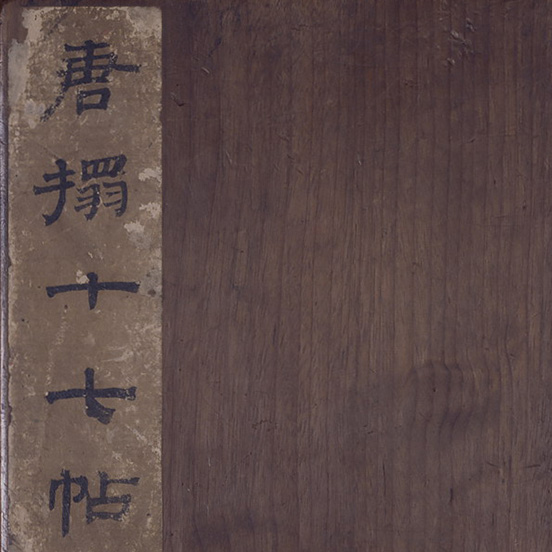 唐搨十七帖